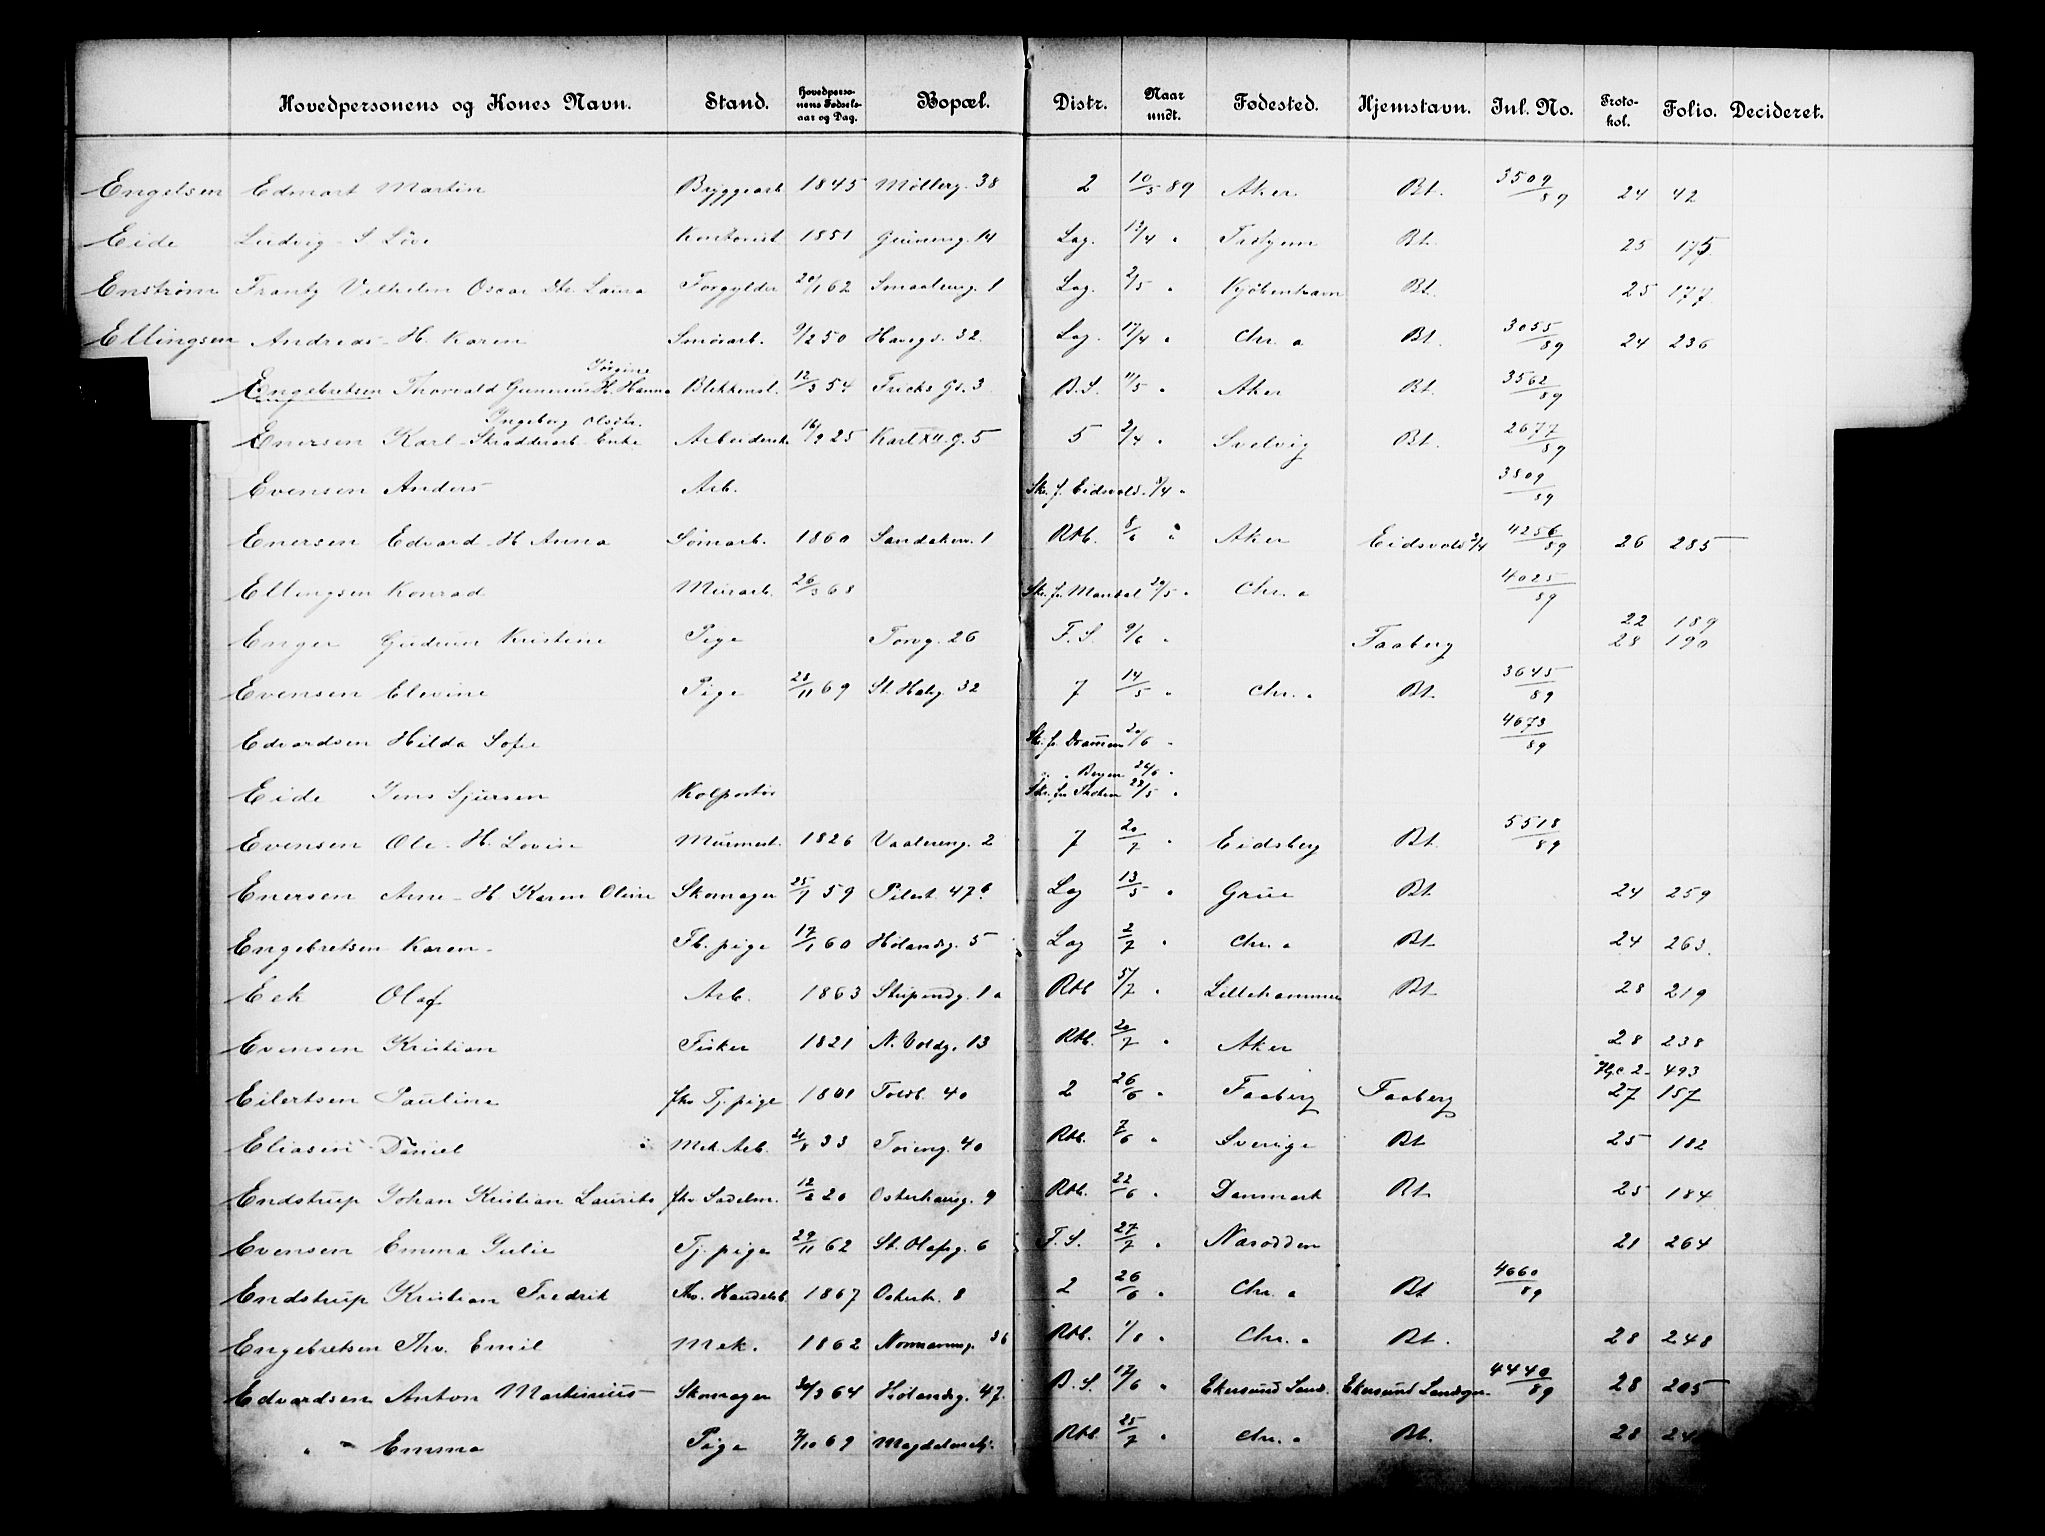 Hovedpersonens og Kones Navn. Stand. Hovedperso-nens Fødsels-aar og Dag. Bopæl. Distr. Naar undt. Fødested. Hjemstavn. Inl. No. Proto-kol. Folio. Decideret.
Engelsen Edmart Martin Bryggearb 1845 Møllerg. 38 2 10/5 89 Aker. Bt. 3509/89 24 42
Eide Ludvig S Kontorist 1851 Grüneng. 14 Lag. 13/4 " Bt. 25 175
Enstrøm Frantz Vilhelm Oscar Laura Forgylder 20/1 62 Smaaleneg. 1 Lag. 2/5 " Kjöbenhavn Bt. 25 177
Ellingsen Andreas - H. Karen Smørarb. 9/2 50 32. Lag. 17/4 " Chr. a Bt. 3055/89 24 236
Jørgine
Engebretsen Thorvald Gunnius H. Hanna Blikkensl. 12/3 54 Fricks Gd. 3 B.S. 11/5 " Aker Bt. 3562/89
Ingeborg Olsdtr.
Enersen Karl - Skrædderarb - Enke Arbeidersk 16/9 25 Karl XII. g. 5 5 2/4 " Svelvig Bt. 2677/89
Evensen Anders Arb. Skr. f. Eidsvold. 9/4 " 3809/89
Enersen Edvard - H Anna Sømarb. 1860 Sandakerv. 1 Rbl. 8/6 " Aker Eidsvold 9/4 4256/89 26 285
Ellingsen Konrad Murarb. 26/3 68 Skr. fr. Mandal 20/5 " Chr. a 4025/89
22 189
Enger Gudrun Kristine Pige Torvg. 26 F.S. 9/6 " Faaberg 28 190
Evensen Elevine Pige 28/11 69 St. Halvg. 32 7 14/5 " Chr. a Bt. 3645/89
Edvardsen Hilda Sofie Skr. fr. Drammen 20/6 " 4673/89
" " Bergen 26/6 "
Eide Jens Sjursen Kolportør Skr. fra Trhiem 22/5 "
Evensen Ole - H. Lovise Murmest. 1826 Vaalereng. 2 7 20/7 " Eidsberg Bt. 5518/89
Enersen Arne - H. Karen Oline Skomager 25/7 59 Pilest. 47 b Lag 13/5 " Grue Bt. 24 259
Engebretsen Karen - Fb. pige 17/1 60 Hølandsg. 5 Lag 2/7 " Chr. a Bt 24 263.
Eek Olaf Arb. 1863 Stupendg. 1 a Rbl 5/7 " Lillehammer Bt 28 219
Evensen Kristian Fisker 1821 N. Voldg. 13 Rbl. 20/7 " Aker 28 238
2 - 493
Eilertsen Pauline fhv Tj. pige 1801 Toldb. 40 2 26/6 " Faaberg Faaberg 27 157
Eliasen Daniel Mek. Arb. 21/8 33 Tøieng. 40 Rbl. 7/6 " Sverige Bt 25 182
Endstrup Johan Kristian Laurits fhv Sadelm. 12/2 20 Osterhausg. 9 Rbl. 22/6 " Danmark Bt 25 184
Evensen Emma Julie Tj. pige 29/11 62 St. Olafsg. 6 F.S. 27/7 " Næsodden 21 264
Endstrup Kristian Fredrik fhv. Handelsb. 1867 Osterh. 8 2 26/6 " Chr. a Bt 4660/89
Engebretsen Thv. Emil Mek. 1862 Normanng. 36 Rbl. 1/8 " Chr. a Bt. 28 248
Edvardsen Anton Martinius Skomager 30/3 64 Hølandsg. 47. B.S. 17/6 " Ekersund Lands. Ekersund Landsogn 4440/89 28 205
" - Emma Pige 7/10 69 Rbl. 25/7 " Chr. a Bt. 28